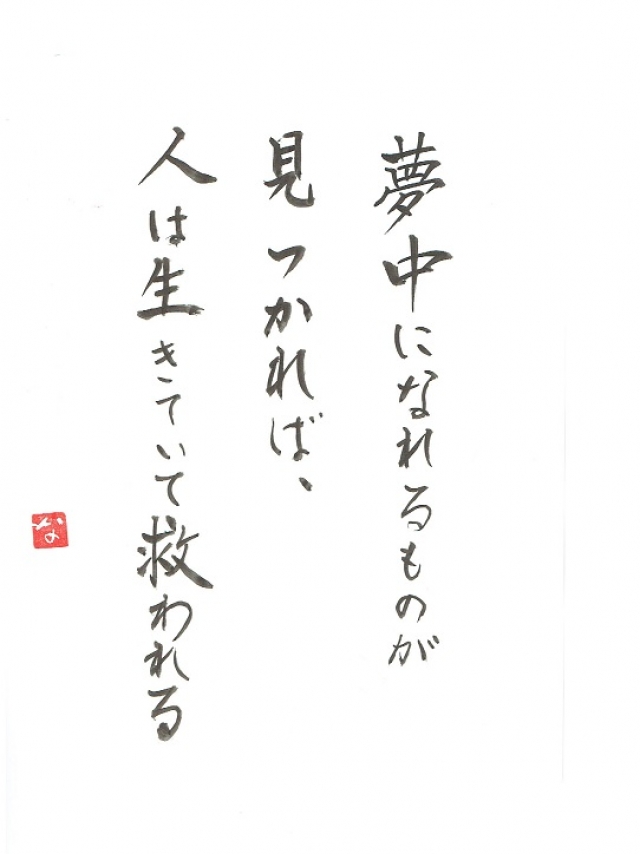 夢中になれるものが
見つかれば、
人は生きていて救われる
かの